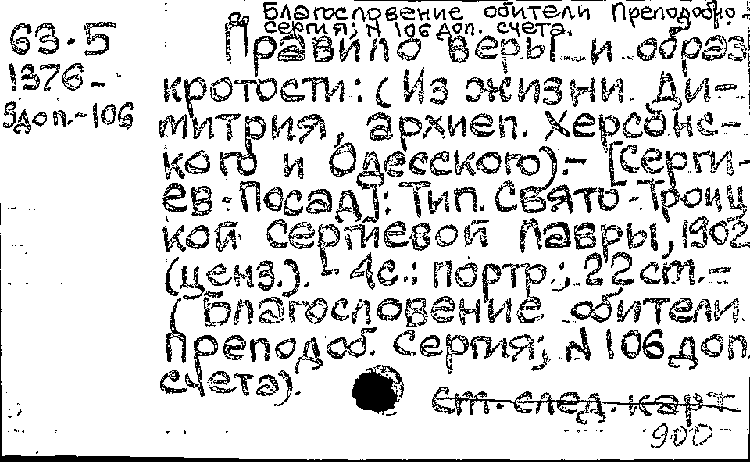 Благословение обители Преподобно-
Сергия; N 106 доп. счета.
63.5
1376-
9доп-106
Правило веры и образ
кротости: (Из жизни Ди-
митрия, архиеп. Херсонс-
кого и Одесского).- [Серги-
ев-Посад]: Тип. Свято-Троиц
кой Сергиевой Лавры, 1902
(ценз.). - 4с.: портр.; 22 cm.-
(Благословение обители
преподоб. Сергия; N 106 доп
счета).
Cm. след. карт
900